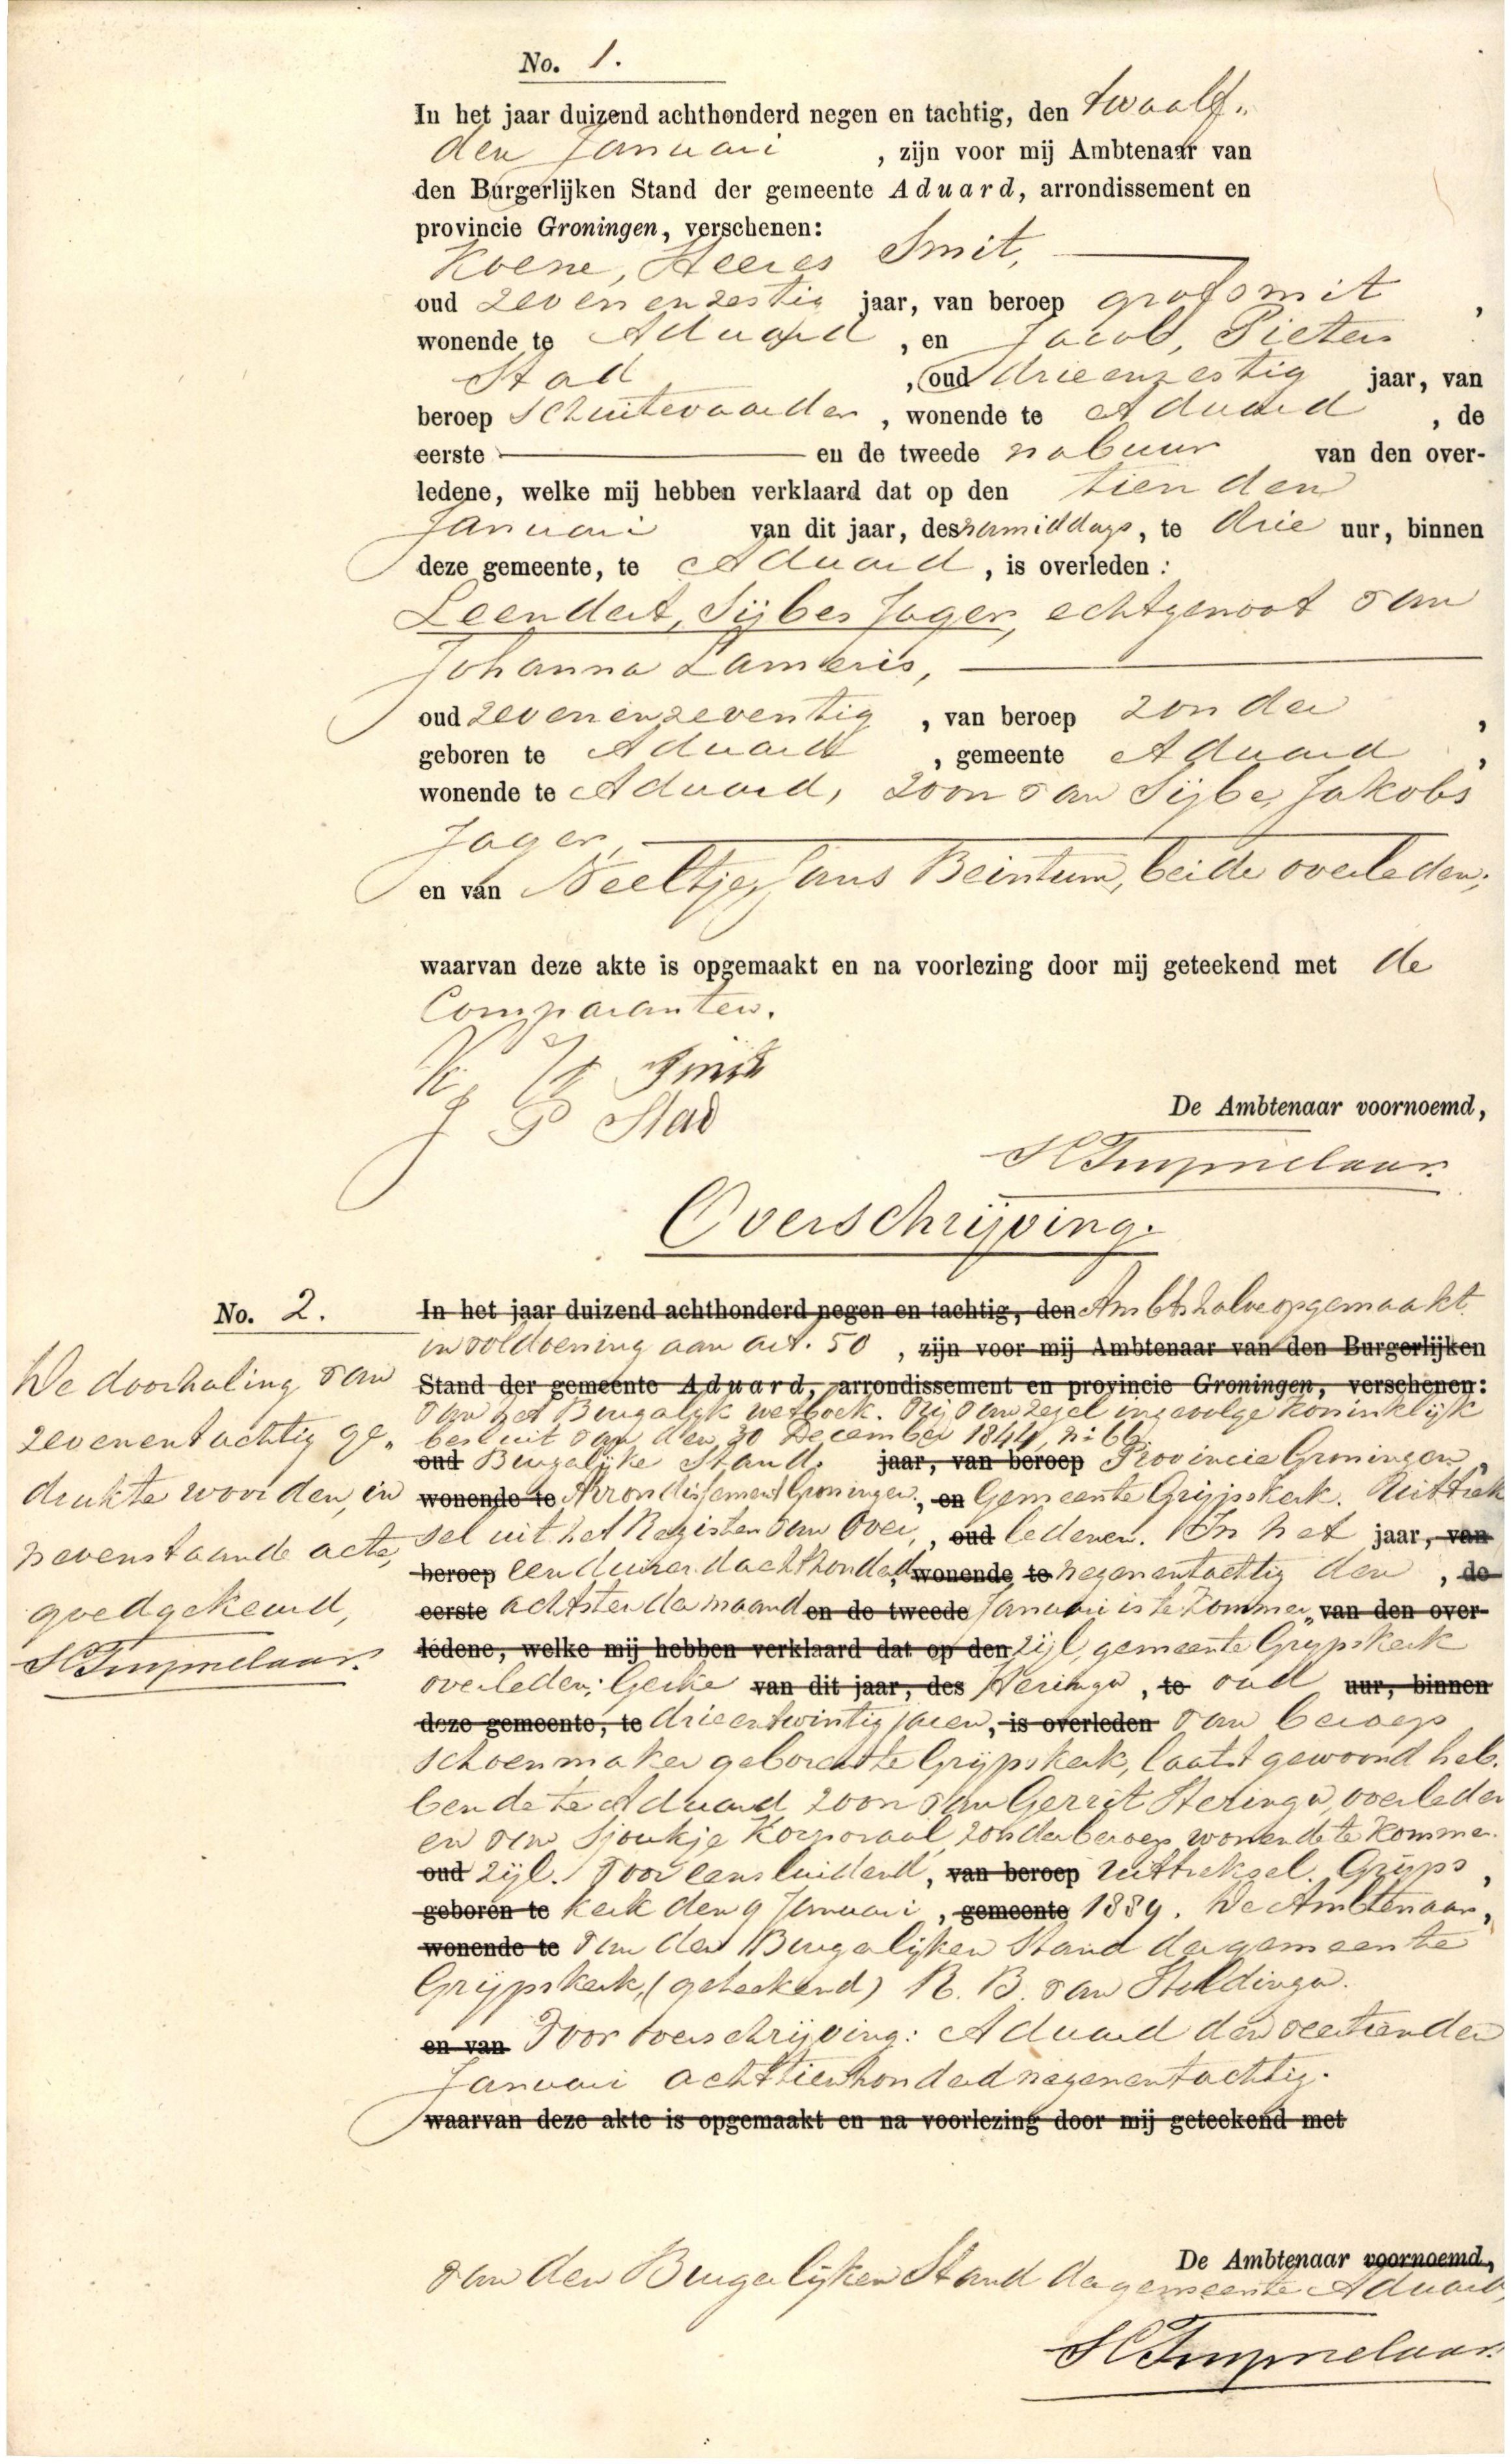 No. 1.
In het jaar duizend achthonderd negen en tachtig, den twaalf„
den Januari , zijn voor mij Ambtenaar van
den Burgerlijken Stand der gemeente Aduard, arrondissement en
provincie Groningen, verschenen:
Koene, Heeres Smit,
oud zevenenzestig jaar, van beroep grofsmit ,
wonende te Aduard , en Jacob, Pieters
Stad , oud drieenzestig jaar, van
beroep Schuitevaarder , wonende te Aduard , de
eerste en de tweede nabuur van den over-
ledene, welke mij hebben verklaard dat op den tienden
Januari van dit jaar, des namiddags, te drie uur, binnen
deze gemeente, te Aduard , is overleden :
Leendert, Sijbes Jager, echtgenoot van
Johanna Lameris,
oud zevenenzeventig , van beroep zonder ,
geboren te Aduard , gemeente Aduard ,
wonende te Aduard, zoon van Sijbe, Jakobs
Jager,
en van Neeltje, Jans Beintum, beide overleden;
waarvan deze akte is opgemaakt en na voorlezing door mij geteekend met de
Comparanten.
K. H. Smit
J P Stad
De Ambtenaar voornoemd,
Overschrijving.
No. 2.
In het jaar duizend achthonderd negen en tachtig, den Ambtshalve opgemaakt
in voldoening aan art. 50 , zijn voor mij Ambtenaar van den Burgerlijken
Stand der gemeente Aduard, arrondissement en provincie Groningen, verschenen:
van het Burgerlijk wetboek. Vrij van zegel ingevolge koninklijk
besluit van den 30 December 1844, n: 66.
oud Burgerlijke Stand. jaar, van beroep Provincie Groningen,
wonende te Arrondissement Groningen, en Gemeente Grijpskerk. Uittrek
sel uit het Register van Over„ , oud ledenen. In het jaar, van
beroep eenduizendachthonderd wonende te negenentachtig den , de
eerste achtsten der maand en de tweede Januari is te Kommer„ van den over-
ledene, welke mij hebben verklaard dat op den zijl, gemeente Grijpskerk
overleden: Gerke van dit jaar, des Heringa , te oud uur, binnen
deze gemeente, te drieentwintig jaren, is overleden van beroep
schoenmaker geboren te Grijpskerk, laatst gewoond heb„
bende te Aduard zoon van Gerrit Heringa, overleden
en van Sjoukje Korporaal, zonder beroep wonende te Kommer„
oud zijl. Voor eensluidend, van beroep uittreksel. Grijps ,
geboren te kerk den 9 Januari , gemeente 1889. De Ambtenaar,
wonende te van den Burgerlijken Stand der gemeente
Grijpskerk, (geteekend) R. B. van
en van Voor overschrijving: Aduard den veertienden
Januari achttienhonderd negenentachtig.
waarvan deze akte is opgemaakt en na voorlezing door mij geteekend met
De Ambtenaar voornoemd,
van den Burgerlijken Stand der gemeente Aduard,
De doorhaling van
zevenentachtig ge„
drukte woorden, in
nevenstaande acte,
goedgekeurd,